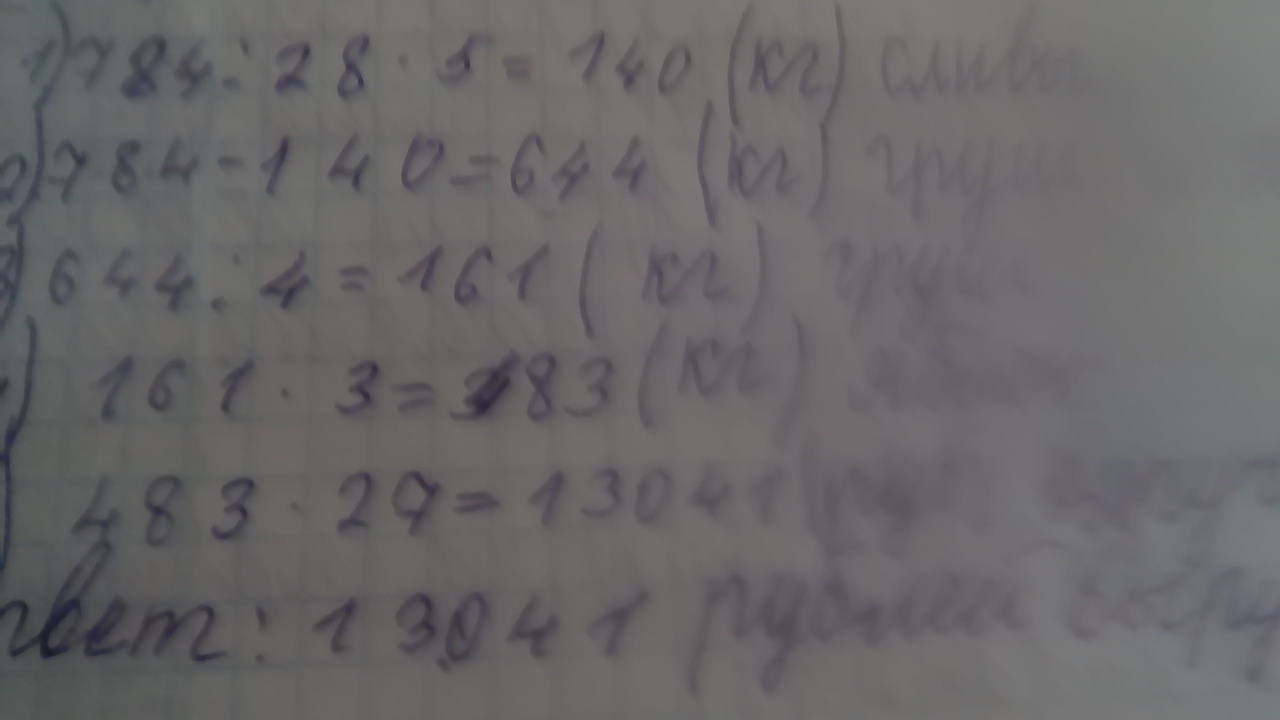 1) 784 : 28 · 5 = 140 (кг) сливы
2) 784 - 140 = 644 (кг) груш
3) 644 : 4 = 161 (кг) груш
) 161 · 3 = 483 (кг)
483 · 27 = 13041
твет: 13041 рублей